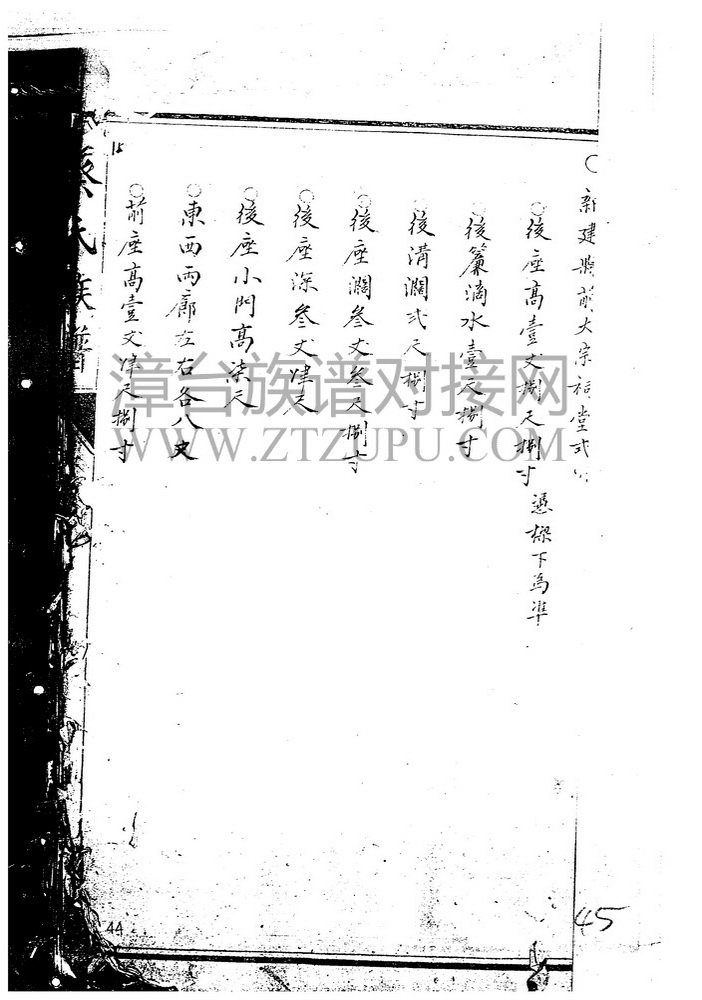 ○新建縣前大宗祠堂弍
○後座高壹丈捌尺捌寸 憑樑下為準
○後簾滴水壹尺捌寸
○後溝濶弍尺捌寸
○後座濶叁丈叁尺捌寸
○後座深叁丈肆尺
○後座小門高柒尺
○東西兩廊左右各八丈
○前座高壹丈肆尺捌寸
15
蔡氏族譜
44
45
漳台族谱对接网
WWW.ZTZUPU.COM